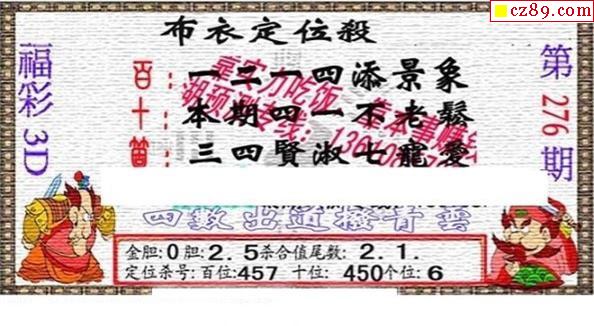 cz89.com
布衣定位殺
福彩3D
第276期
百：一二一四添景象
十：本期四一不老鬆
三四賢淑七寵愛
靠实力吃饭 靠本事赚
四數出道撥青雲
金胆:0胆:2.5杀合值尾数:2.1.
定位杀号:百位:457 十位:450个位:6